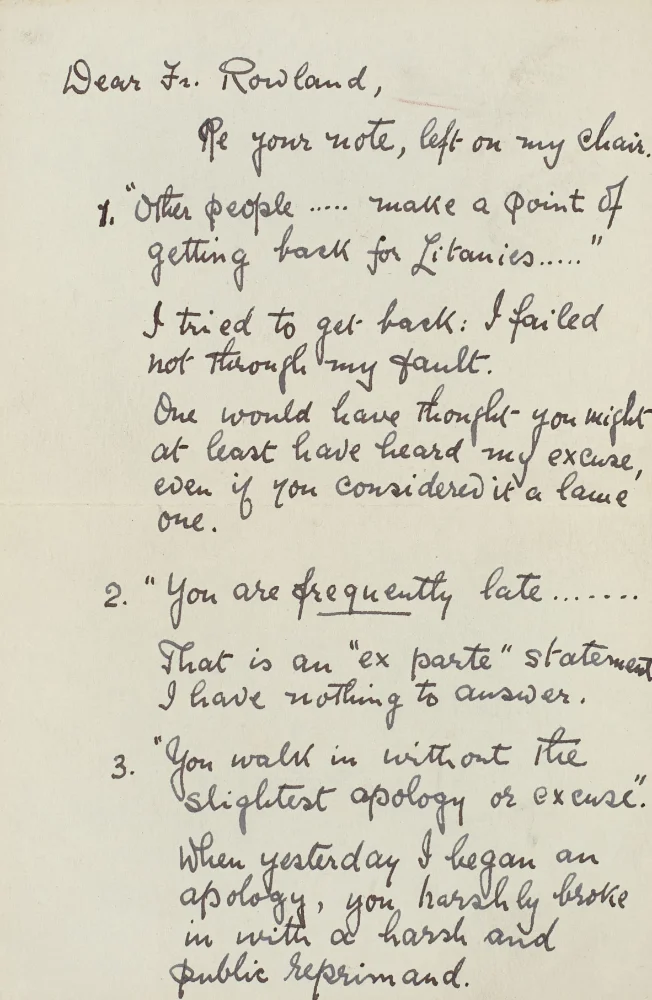 Dear Fr. Rowland,
Re your note, left on my chair.
1. "Other people ..... make a point of
getting back for Litanies....."
I tried to get back: I failed
not through my fault.
One would have thought you might
at least have heard my excuse,
even if you considered it a lame
one.
2. "You are frequently late .......
That is an "ex parte" statement
I have nothing to answer.
3. "You walk in without the
slightest apology or excuse".
When yesterday I began an
apology, you harshly broke
in with a harsh and
public reprimand.